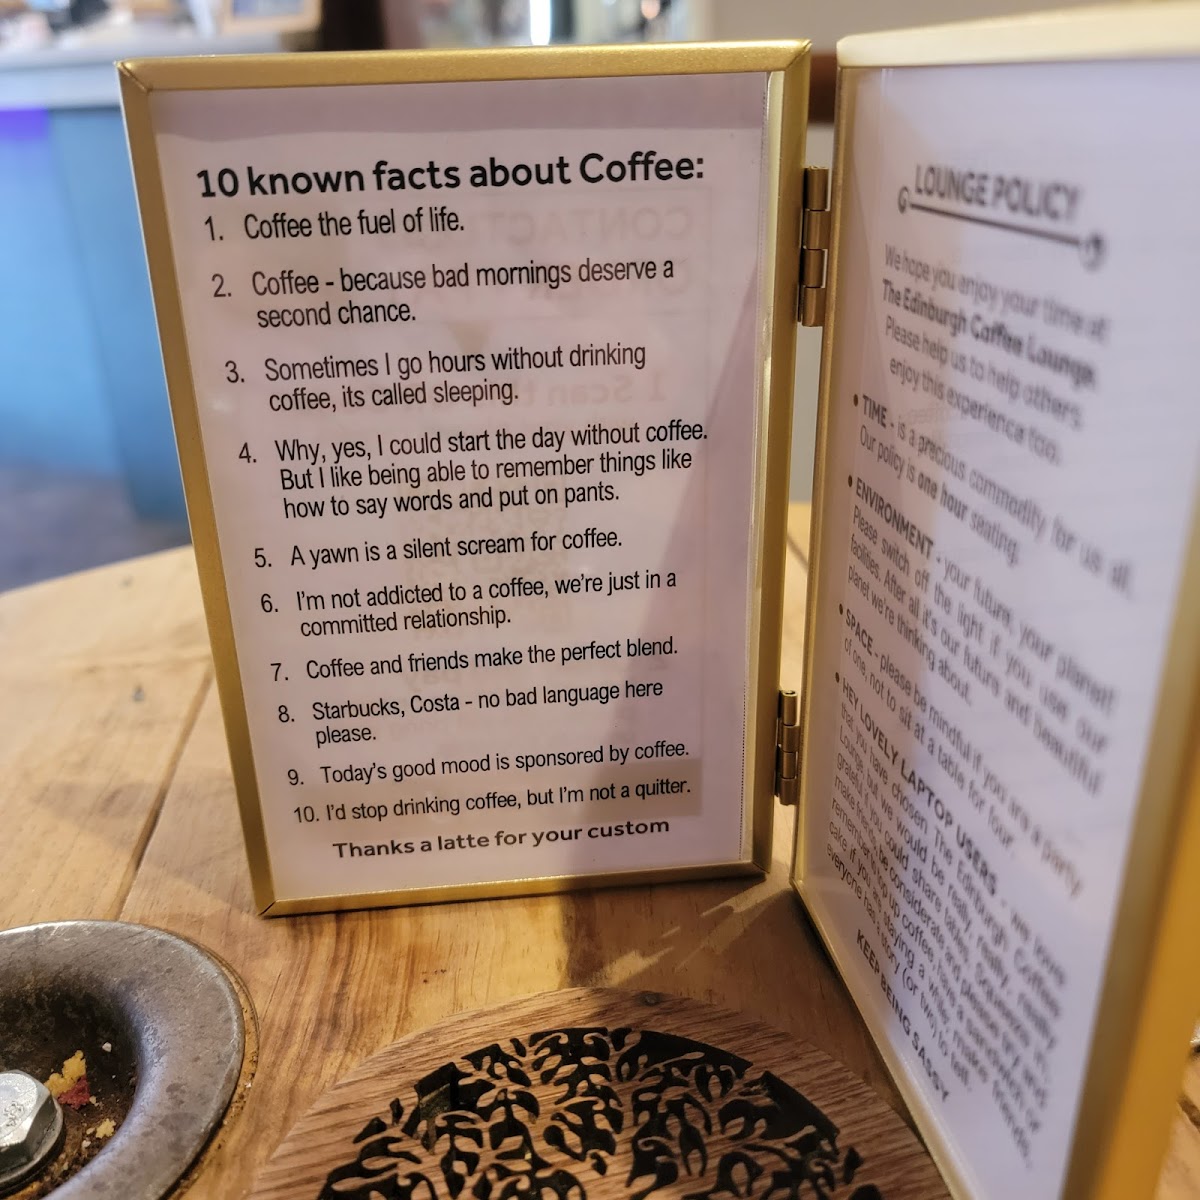 10 known facts about Coffee:
1. Coffee the fuel of life.
2. Coffee - because bad mornings deserve a
second chance.
3. Sometimes I go hours without drinking
coffee, its called sleeping.
4. Why, yes, I could start the day without coffee.
But I like being able to remember things like
how to say words and put on pants.
5. A yawn is a silent scream for coffee.
6. I'm not addicted to a coffee, we're just in a
committed relationship.
7. Coffee and friends make the perfect blend.
8. Starbucks, Costa - no bad language here
please.
9. Today's good mood is sponsored by coffee.
10. I'd stop drinking coffee, but I'm not a quitter.
Thanks a latte for your custom
LOUNGE POLICY
We hope you enjoy your time at
The Edinburgh Coffee Lounge.
Please help us to help others
enjoy this experience too.
• TIME - is a precious commodity for us all.
Our policy is one hour seating.
• ENVIRONMENT - your future, your planet
Please switch off the light if you use our
facilities. After all it's our future and beautiful
planet we're thinking about.
• SPACE - please be mindful if you are a party
of one, not to sit at a table for four.
• HEY LOVELY LAPTOP USERS - we love
that you have chosen The Edinburgh Coffee
Lounge, but we would be really, really
grateful if you could share tables. Squeeze in,
make friends, be considerate and please try and
remember to top up coffee, have a sandwich or
cake if you are staying a while, make friends,
everyone has a story (or two) to tell.
KEEP BEING SASSY